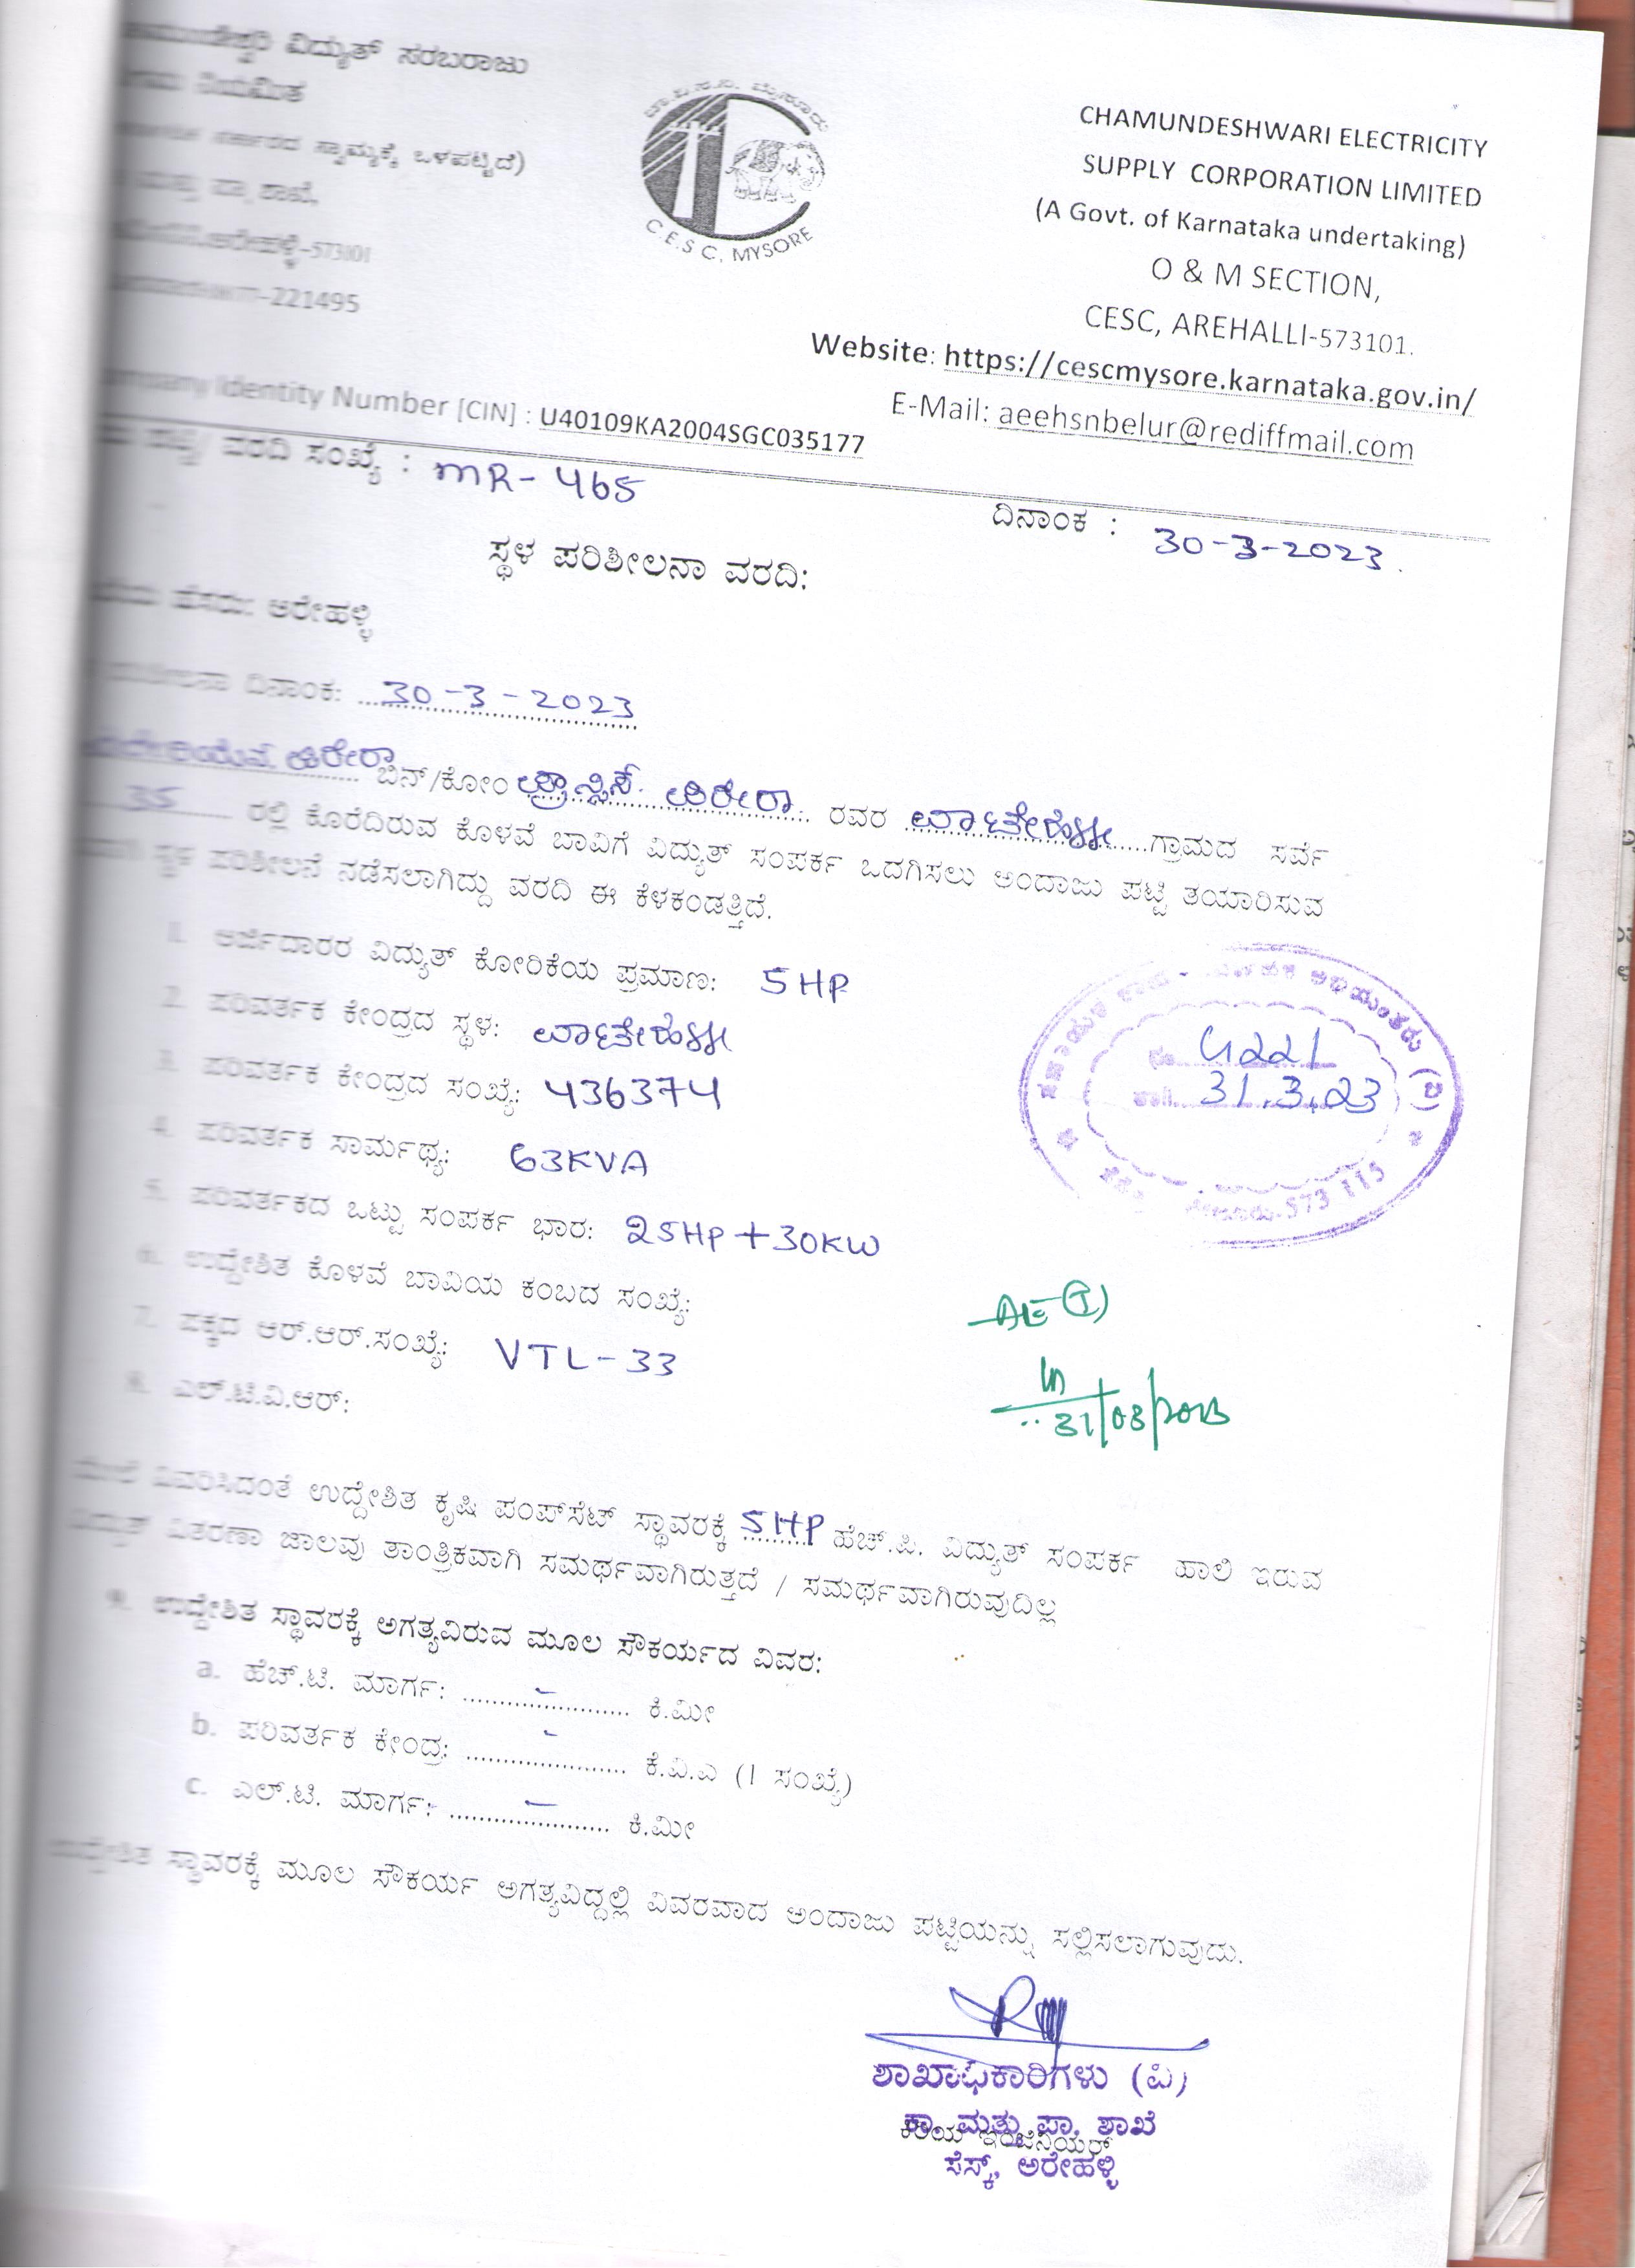 ವಿದ್ಯುತ್ ಸರಬರಾಜು
ನಿಯಮಿತ
ಸರ್ಕಾರದ ಸ್ವಾಮ್ಯಕ್ಕೆ ಒಳಪಟ್ಟಿದೆ)
ಮತ್ತು ಪಾ ಶಾಖೆ,
ಅರೇಹಳ್ಳಿ-573101
-221495
ಚಾ.ವಿ.ಸ.ನಿ. ಮೈಸೂರು
C.E.S C, MYSORE
CHAMUNDESHWARI ELECTRICITY
SUPPLY CORPORATION LIMITED
(A Govt. of Karnataka undertaking)
O & M SECTION,
CESC, AREHALLI-573101.
Website: https://cescmysore.karnataka.gov.in/
E-Mail: aeehsnbelur@rediffmail.com
Identity Number [CIN] : U40109KA2004SGC035177
ವರದಿ ಸಂಖ್ಯೆ : MR- 465
ದಿನಾಂಕ : 30-3-2023.
ಸ್ಥಳ ಪರಿಶೀಲನಾ ವರದಿ:
ಹೆಸರು: ಅರೇಹಳ್ಳಿ
ದಿನಾಂಕ: 30-3-2023
ಬಿನ್/ಕೋಂ ರವರ ಗ್ರಾಮದ ಸರ್ವೆ
35 ರಲ್ಲಿ ಕೊರೆದಿರುವ ಕೊಳವೆ ಬಾವಿಗೆ ವಿದ್ಯುತ್ ಸಂಪರ್ಕ ಒದಗಿಸಲು ಅಂದಾಜು ಪಟ್ಟಿ ತಯಾರಿಸುವ
ಸ್ಥಳ ಪರಿಶೀಲನೆ ನಡೆಸಲಾಗಿದ್ದು ವರದಿ ಈ ಕೆಳಕಂಡತ್ತಿದೆ.
1. ಅರ್ಜಿದಾರರ ವಿದ್ಯುತ್ ಕೋರಿಕೆಯ ಪ್ರಮಾಣ: 5HP
2. ಪರಿವರ್ತಕ ಕೇಂದ್ರದ ಸ್ಥಳ:
3. ಪರಿವರ್ತಕ ಕೇಂದ್ರದ ಸಂಖ್ಯೆ: 436374
4. ಪರಿವರ್ತಕ ಸಾರ್ಮಥ್ಯ: 63KVA
5. ಪರಿವರ್ತಕದ ಒಟ್ಟು ಸಂಪರ್ಕ ಭಾರ: 25HP+30KW
6. ಉದ್ದೇಶಿತ ಕೊಳವೆ ಬಾವಿಯ ಕಂಬದ ಸಂಖ್ಯೆ:
7. ಪಕ್ಕದ ಆರ್.ಆರ್.ಸಂಖ್ಯೆ: VTL-33
8. ಎಲ್.ಟಿ.ವಿ.ಆರ್:
4221
31.3.23
573 115
AE(T)
31/03/2023
ವಿವರಿಸಿದಂತೆ ಉದ್ದೇಶಿತ ಕೃಷಿ ಪಂಪ್‌ಸೆಟ್ ಸ್ಥಾವರಕ್ಕೆ 5HP ಹೆಚ್.ಪಿ. ವಿದ್ಯುತ್ ಸಂಪರ್ಕ ಹಾಲಿ ಇರುವ
ವಿದ್ಯುತ್ ವಿತರಣಾ ಜಾಲವು ತಾಂತ್ರಿಕವಾಗಿ ಸಮರ್ಥವಾಗಿರುತ್ತದೆ / ಸಮರ್ಥವಾಗಿರುವುದಿಲ್ಲ
9. ಉದ್ದೇಶಿತ ಸ್ಥಾವರಕ್ಕೆ ಅಗತ್ಯವಿರುವ ಮೂಲ ಸೌಕರ್ಯದ ವಿವರ:
a. ಹೆಚ್.ಟಿ. ಮಾರ್ಗ: - ಕಿ.ಮೀ
b. ಪರಿವರ್ತಕ ಕೇಂದ್ರ: - ಕೆ.ವಿ.ಎ (1 ಸಂಖ್ಯೆ)
c. ಎಲ್.ಟಿ. ಮಾರ್ಗ: - ಕಿ.ಮೀ
ಉದ್ದೇಶಿತ ಸ್ಥಾವರಕ್ಕೆ ಮೂಲ ಸೌಕರ್ಯ ಅಗತ್ಯವಿದ್ದಲ್ಲಿ ವಿವರವಾದ ಅಂದಾಜು ಪಟ್ಟಿಯನ್ನು ಸಲ್ಲಿಸಲಾಗುವುದು.
ಶಾಖಾಧಿಕಾರಿಗಳು (ವಿ)
ಕಾ. ಮತ್ತು ಪಾ. ಶಾಖೆ
ಕಿರಿಯ ಇಂಜಿನಿಯರ್
ಸೆಸ್ಕ್, ಅರೇಹಳ್ಳಿ